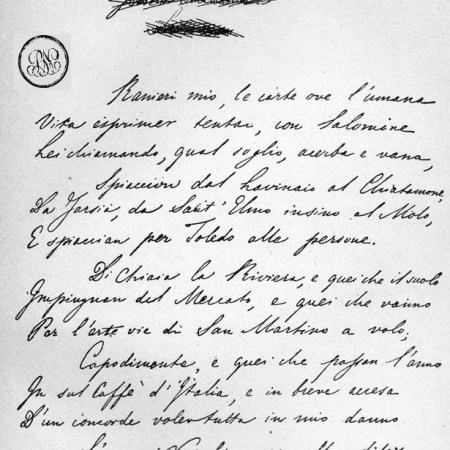 Ranieri mio, le carte ove l'umana
Vita esprimer tentai, con Salomone
Lei chiamando, qual soglio, acerba e vana,
Spiaccion dal Lavinaio al Chiatamone,
Da Tarsia, da Sant' Elmo insino al Molo,
E spiaccian per Toledo alle persone.
Di Chiaia la Riviera, e quei che il suolo
Impinguan del Mercato, e quei che vanno
Per l'erte vie di San Martino a volo;
Capodimonte, e quei che passan l'anno
In sul Caffè d'Italia, e in breve accesa
D'un concorde voler tutta in mio danno